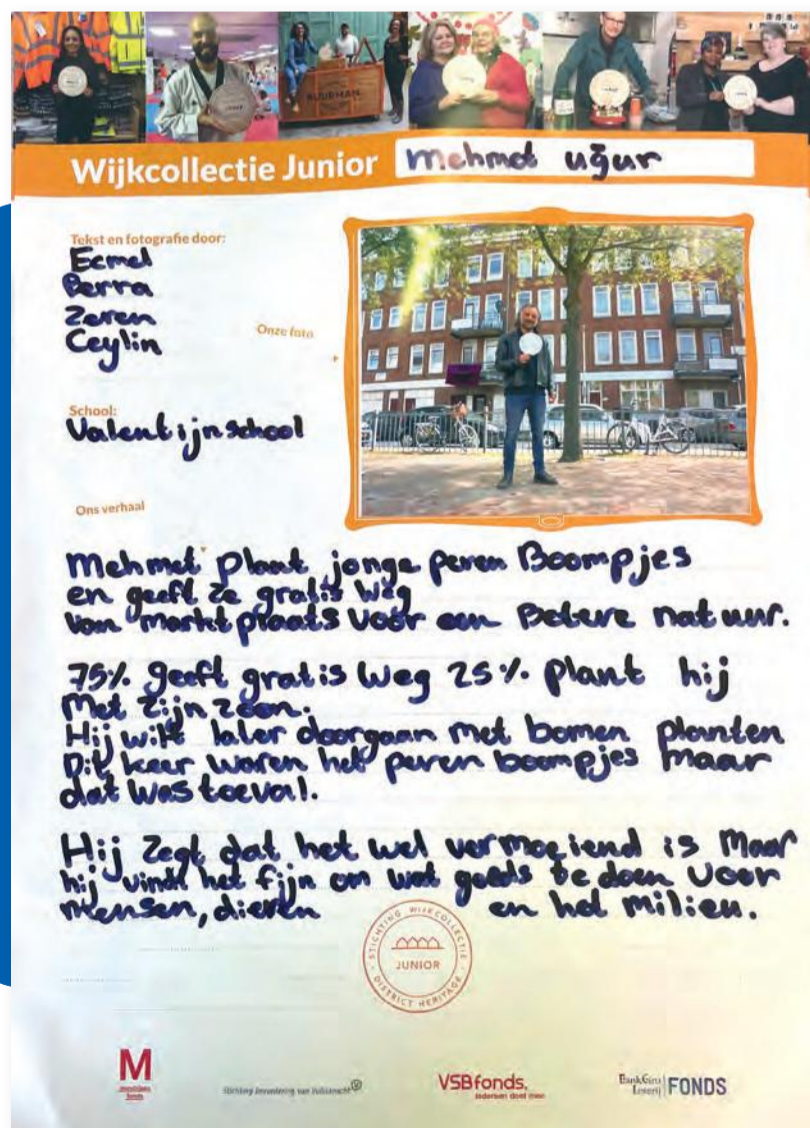 BUURMAN
Wijkcollectie Junior
Mehmet uğur
Tekst en fotografie door:
Ecmel
Berra
Zeren
Ceylin
Onze foto
School:
Valentijnschool
Ons verhaal
Mehmet Plant jonge peren Boompjes
en geeft ze gratis weg
van marktplaats voor een Betere natuur.
75% geeft gratis weg 25% plant hij
Met zijn zoon.
Hij wilt later doorgaan met bomen planten
Dit keer waren het peren boompjes maar
dat was toeval.
Hij zegt dat het wel vermoeiend is maar
hij vindt het fijn om wat goeds te doen voor
mensen, dieren en het milieu.
STICHTING WIJKCOLLECTIE
JUNIOR
DISTRICT HERITAGE
M
fonds
Stichting Bevordering van Volkskracht
VSBfonds.
iedereen doet mee
BankGiro
Loterij FONDS